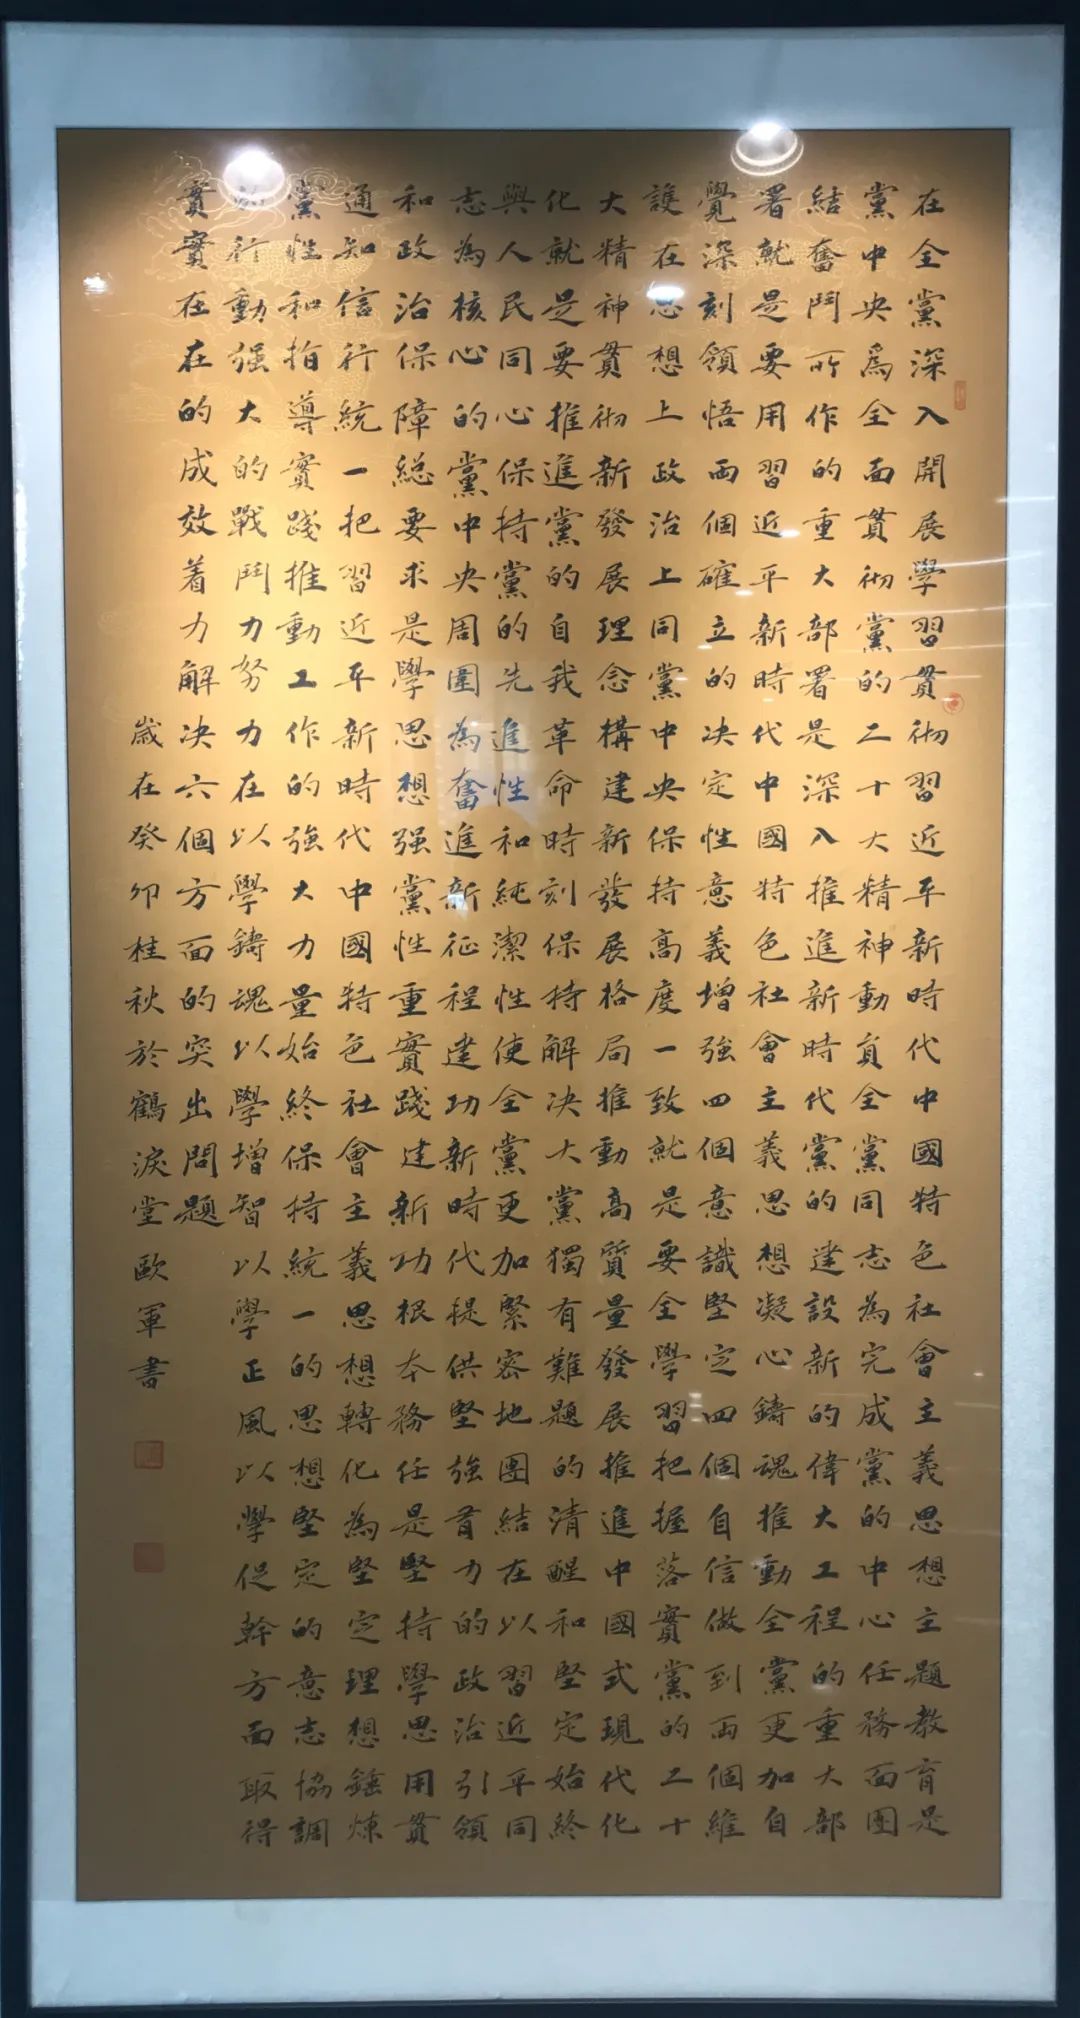 在全黨深入開展學習貫彻習近平新時代中國特色社會主義思想主題教育是
黨中央爲全面貫彻黨的二十大精神動員全黨同志為完成黨的中心任務面團
結奮鬥所作的重大部署是深入推進新時代黨的建設新的偉大工程的重大部
署就是要用習近平新時代中國特色社會主義思想凝心鑄魂推動全黨更加自
覺深刻領悟兩個確立的决定性意義增強四個意識堅定四個自信做到兩個維
護在思想上政治上同黨中央保持高度一致就是要全學習把握落實黨的二十
大精神貫彻新發展理念構建新發展格局推動高質量發展推進中國式現代化
化就是要推進黨的自我革命時刻保持解决大黨獨有難題的清醒和堅定始終
與人民同心保持黨的先進性和純潔性使全黨更加緊密地團結在以習近平同
志為核心的黨中央周圍為奮進新征程建功新時代提供堅強有力的政治引領
和政治保障総要求是學思想强黨性重實踐建新功根本務任是堅持學思用貫
通知信行統一把習近平新時代中國特色社會主義思想轉化為堅定理想錘煉
黨性和指導實踐推動工作的強大力量始終保持統一的思想堅定的意志協調
行動强大的戰鬥力努力在以學鑄魂以學增智以學正風以學促幹方面取得
實實在在的成效着力解决六個方面的突出問題
歲在癸卯桂秋於鶴淚堂歐軍書